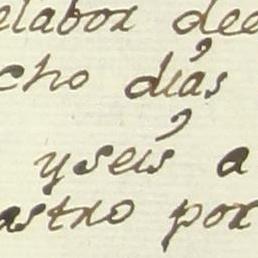 elabor dee
cho días
y seís a
astro por